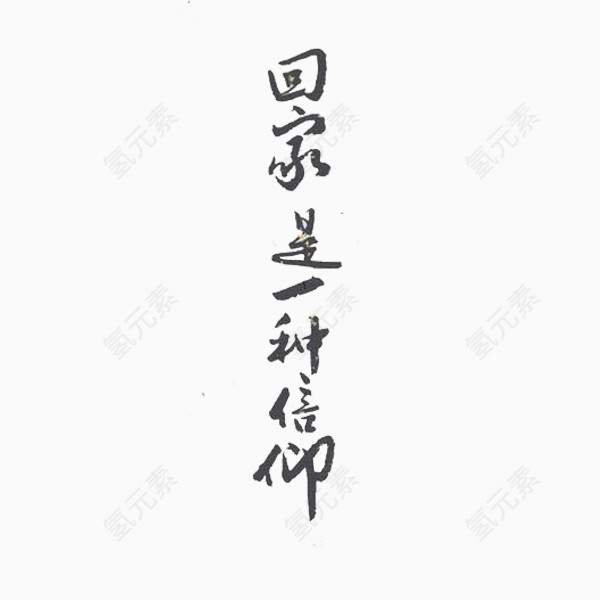 回家是一种信仰
氢元素
氢元素
氢元素
氢元素
氢元素
氢元素
氢元素
氢元素
氢元素